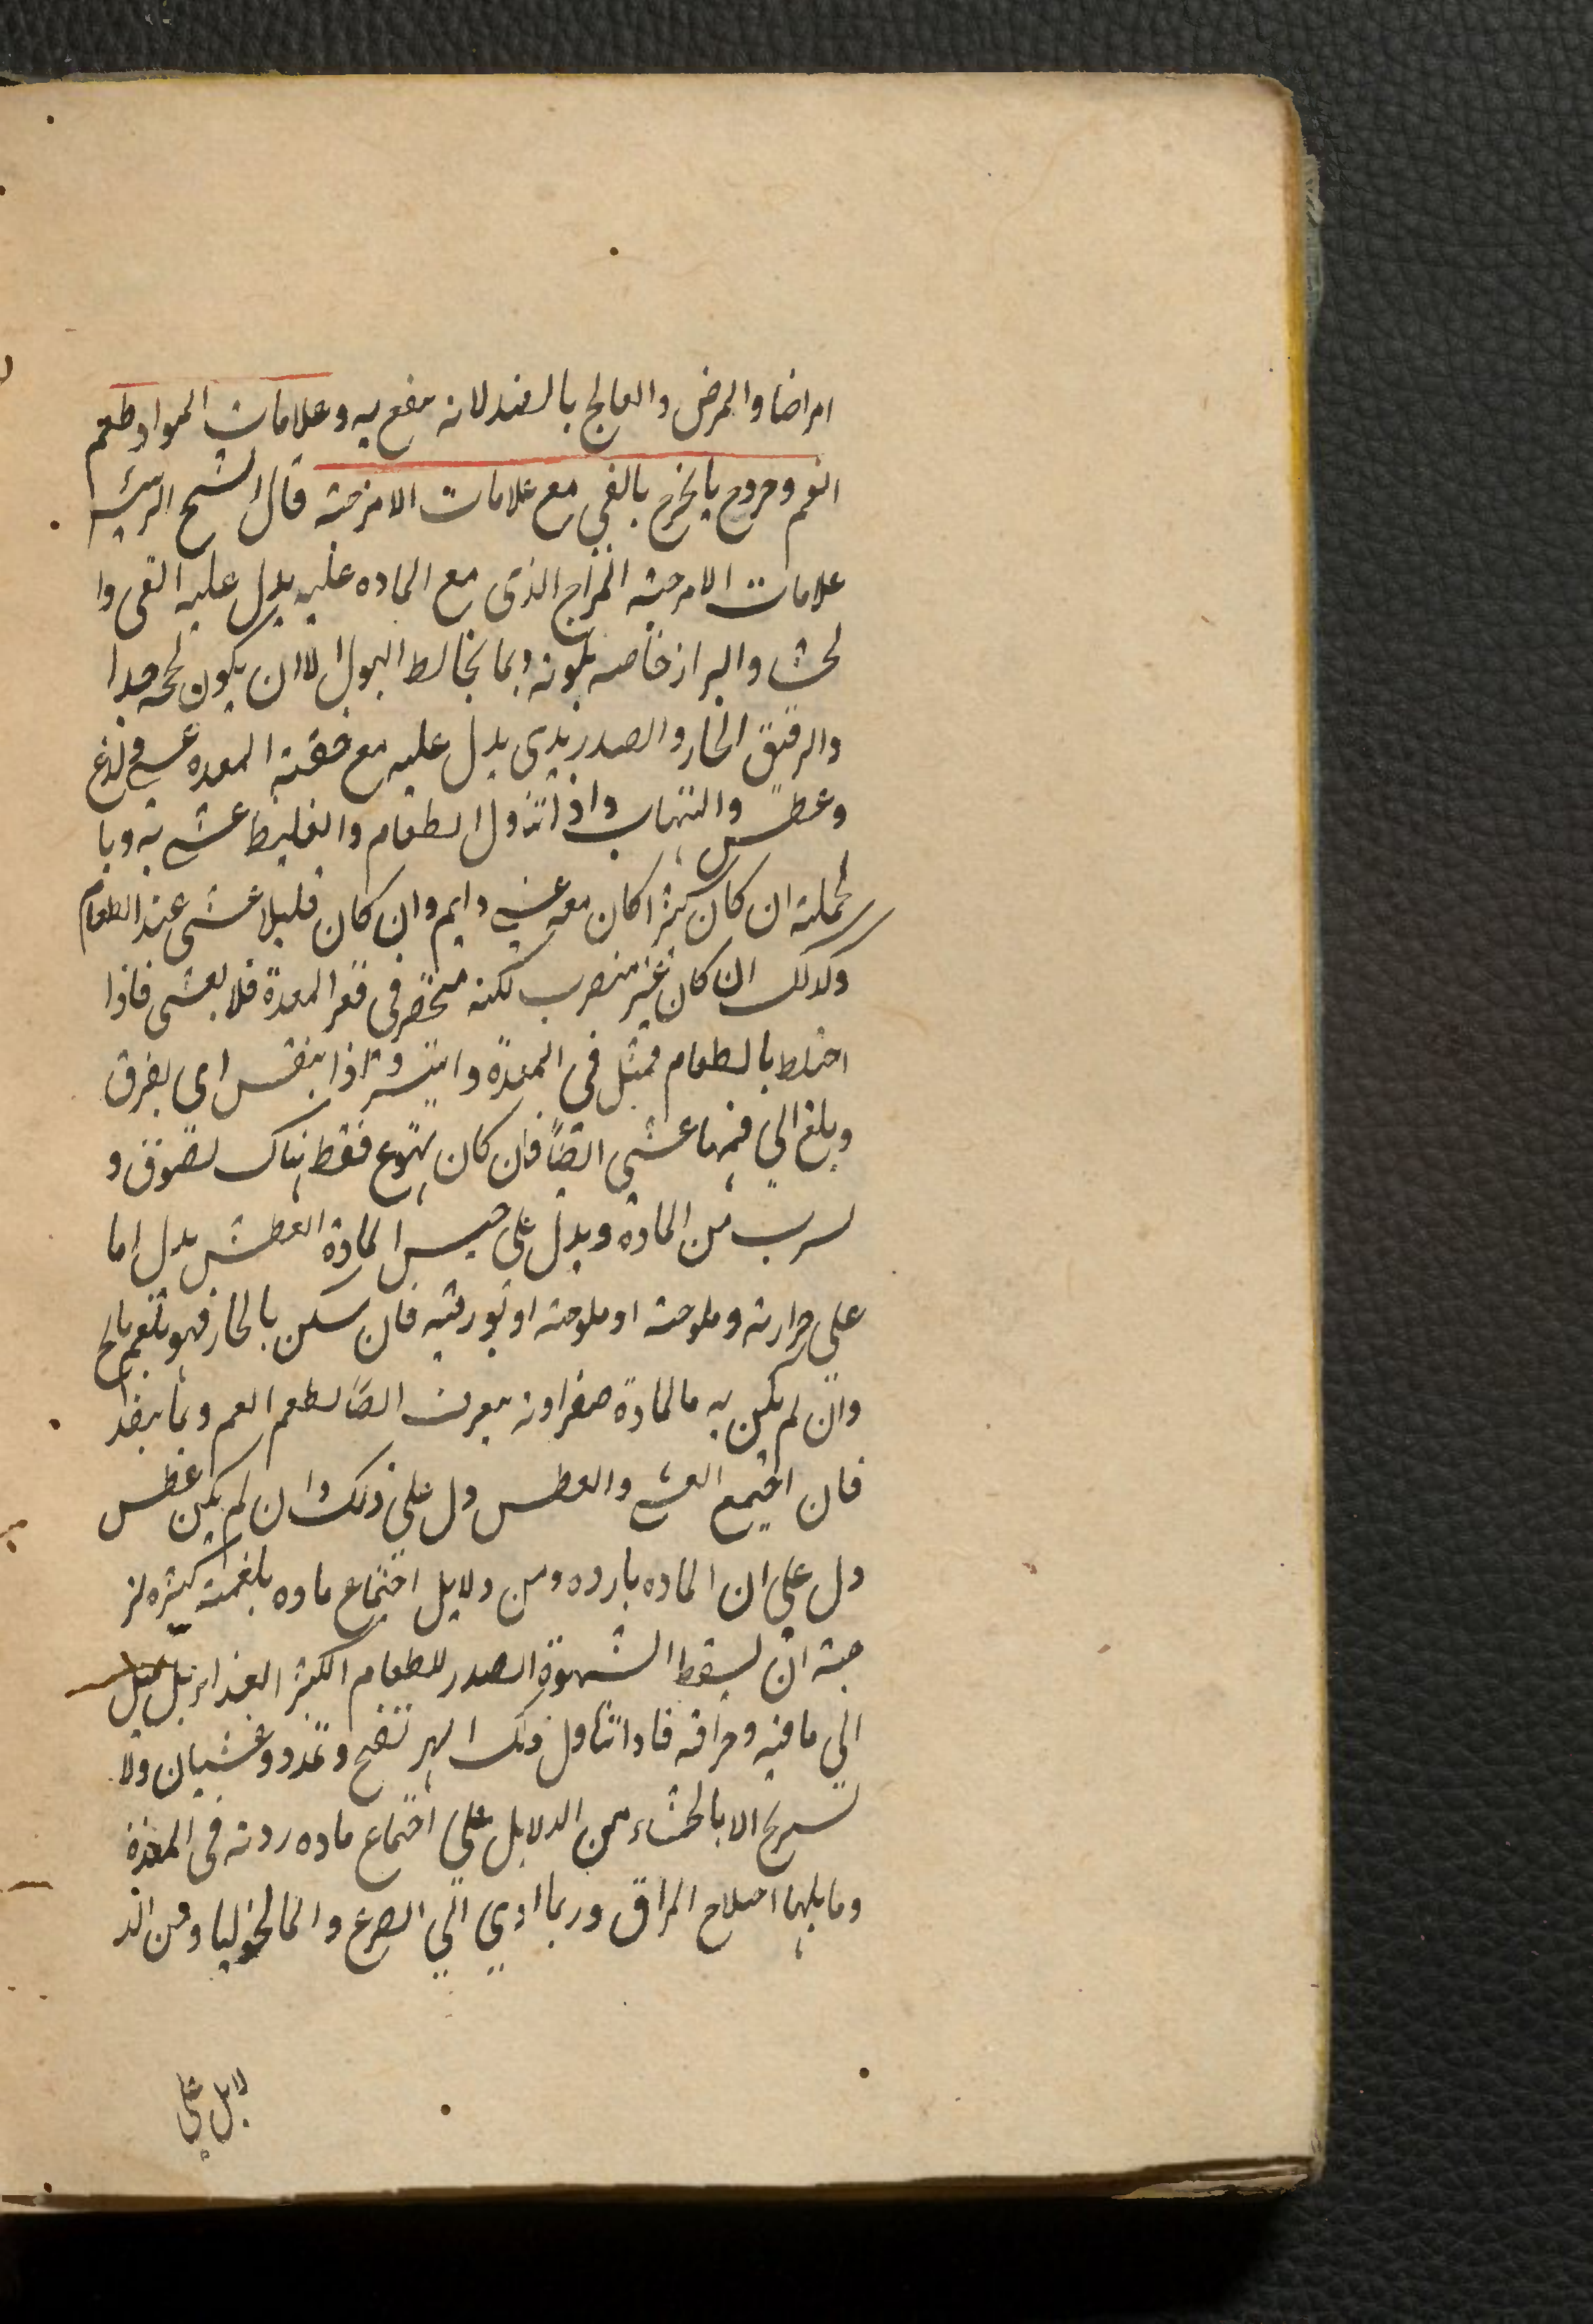 امراضا والمرض والعالج بالضد لانه ينفع به وعلامات المواد طعم
الفم وخروج ما يخرج بالقي مع علامات الامزجة قال الشيخ الرئيس
علامات الامزجة المزاج الذى مع الماده عليه يدل عليه القى وا
لجشا والبراز خاصه بلونه وبما يخالط البول الا ان يكون لحجه جدا
والرقيق الحار والصديدى يدل عليه مع خفة المعده غشى ولذع
وعطش والتهاب واذا تناول الطعام والغليظ غشى به وبا
لجملة ان كان كثيرا كان معه غشى دايم وان كان قليلا غشى عند الطعام
وكذلك ان كان غير متشرب لكنه منحصر فى قعر المعدة فلا يغشى فاذا
اختلط بالطعام فى المعدة وانتشر واذا اى يفرق
وبلغ الي فمها غشى ايضا فان كان تهوع فقط هناك لصوق و
تشرب من المادة ويدل على جنس المادة العطش يدل اما
على حرارته وملوحته او ملوحته او بورقيته فان سكن بالحار فهو بلغم مالح
وان لم يكن به فالمادة صفراويه يعرف ايضا لطعم الفم وبما
فان اجتمع الغشى والعطش دل على ذلك وان لم يكن عطش
دل على ان الماده بارده ومن دلايل اجتماع ماده بلغمية كثيره لز
جية ان يسقط الشهوة الصدر للطعام الكثير الغذا بل يميل
الى ما فيه حرافه فاذا تناول ذلك نفخ وتمدد وغثيان ولا
يستريح الا بالجشاء ومن الدلايل على اجتماع ماده رديه فى المعدة
وما يليها اختلاج المراق وربما ادي الي الصرع والمالنخوليا ومن الد
لايل على